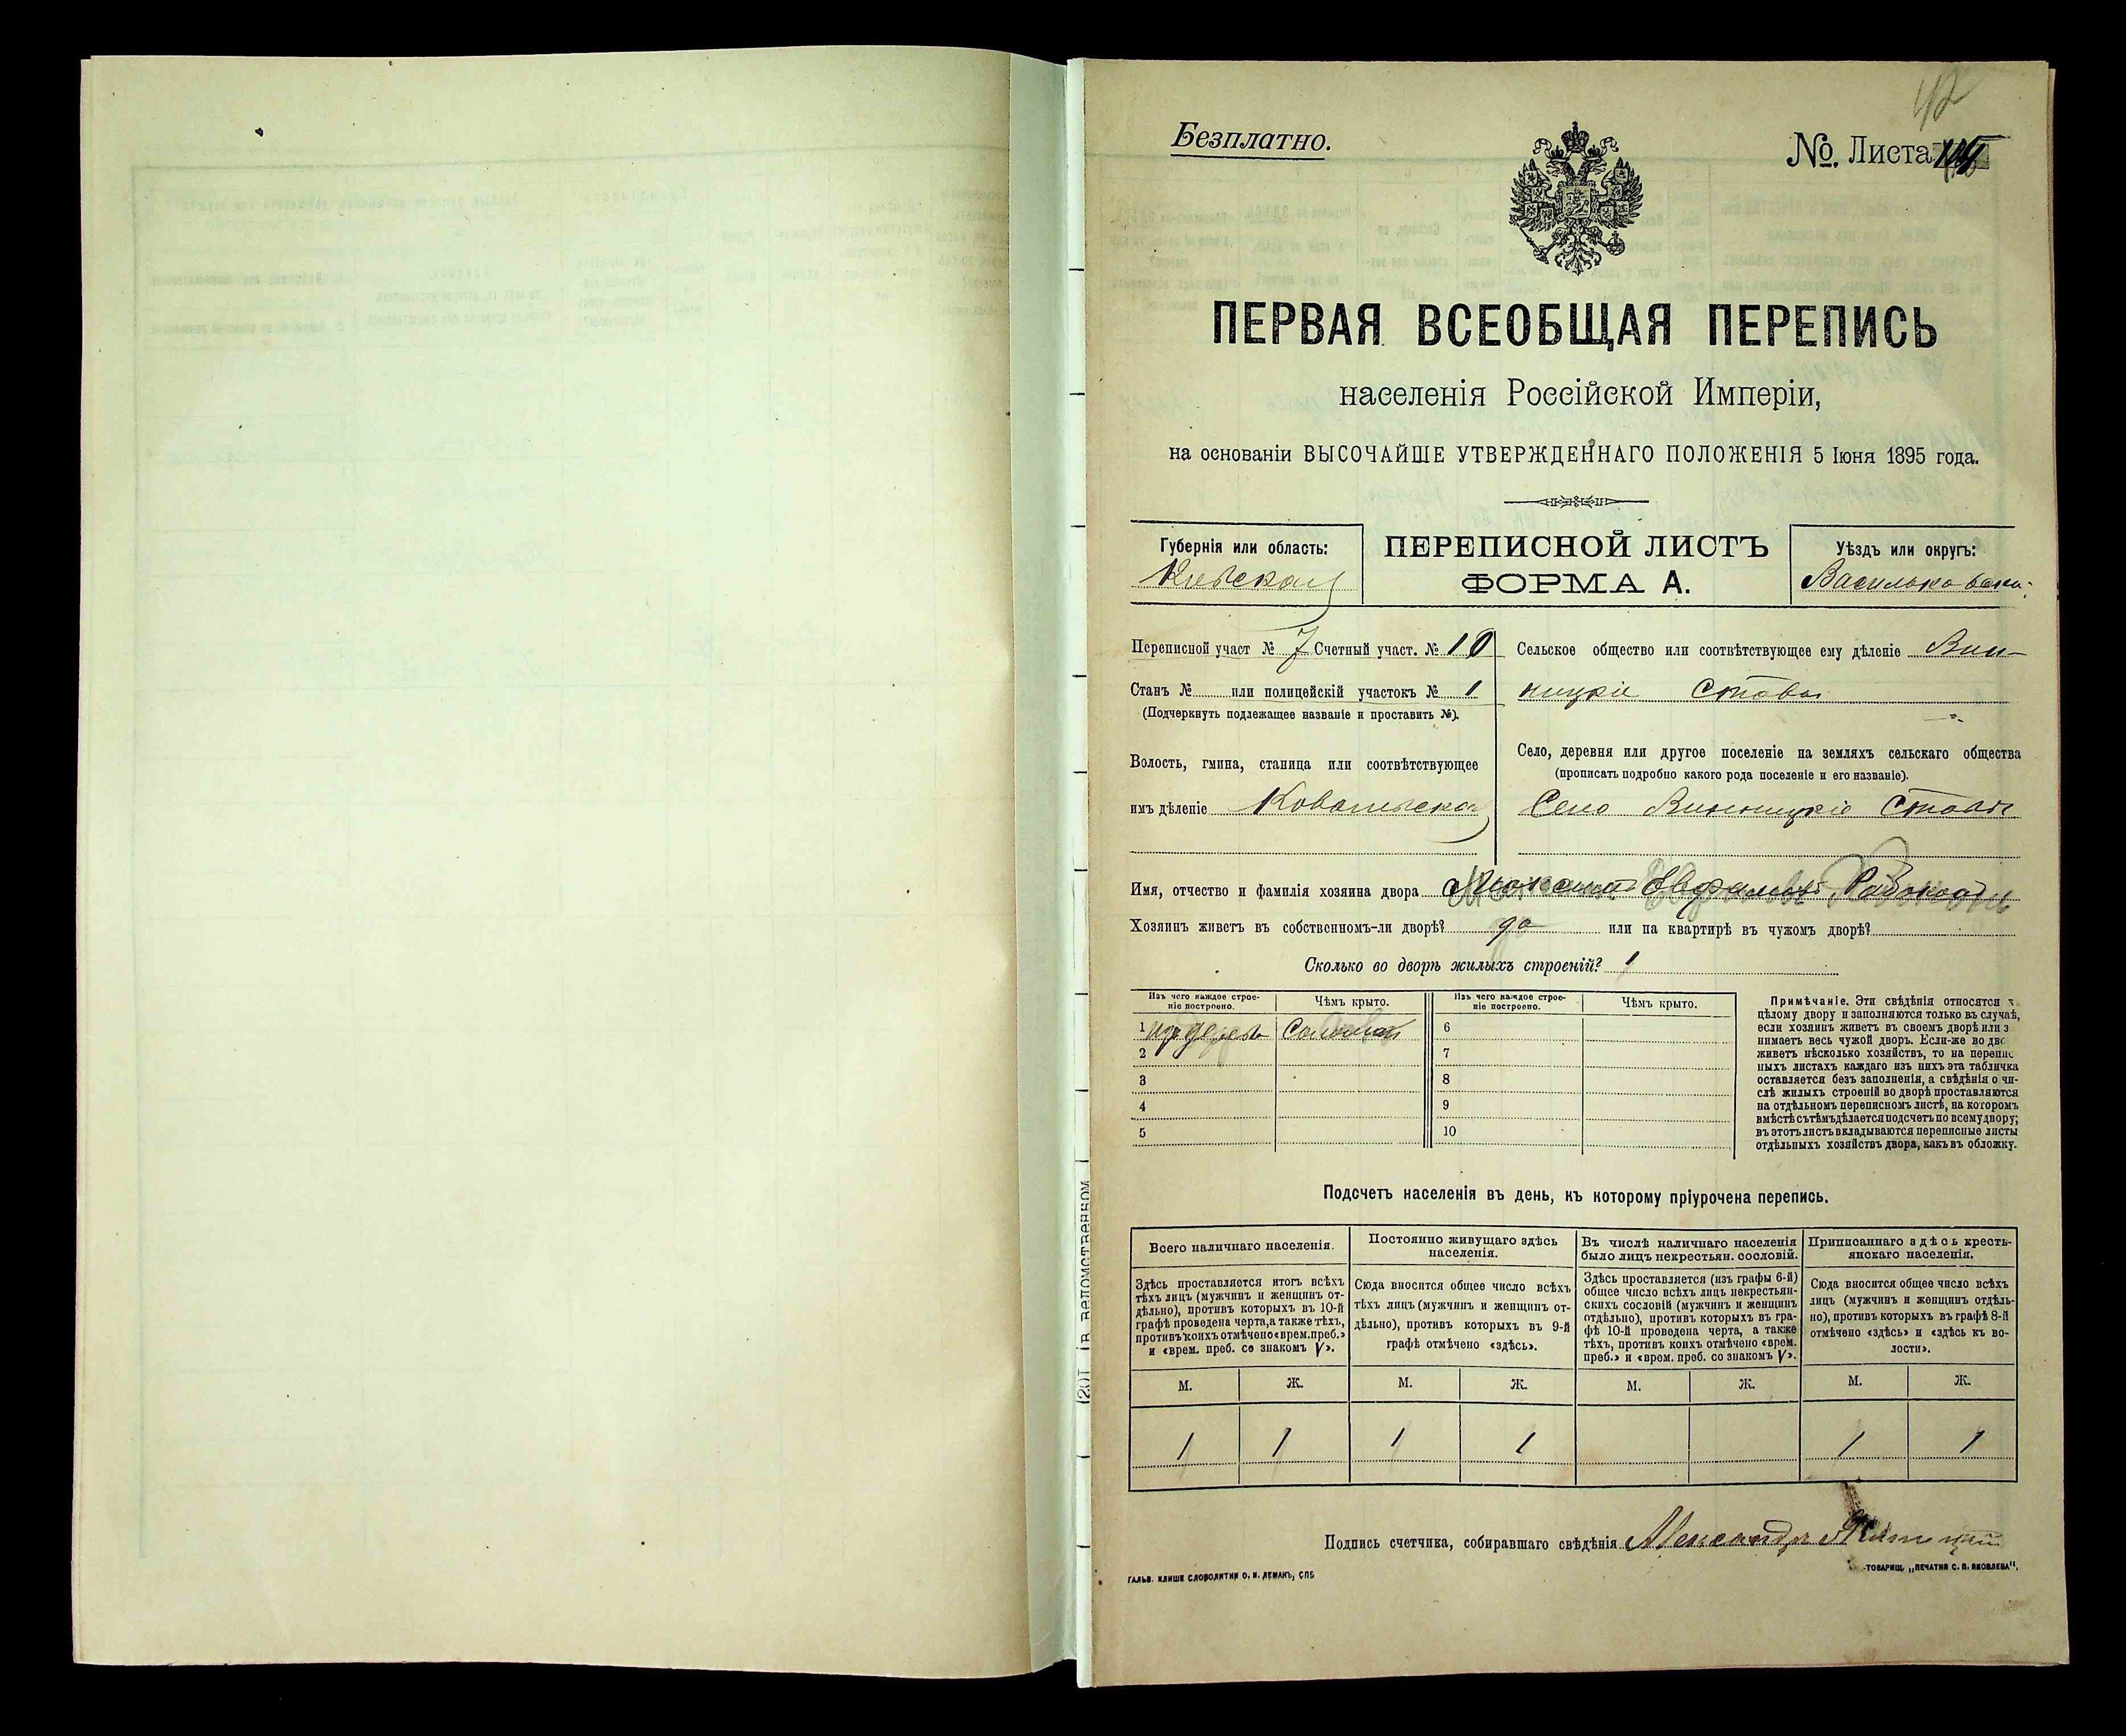 42
Безплатно.
№. Листа
ПЕРВАЯ ВСЕОБЩАЯ ПЕРЕПИСЬ
населенія Россійской Имперіи,
на основаніи ВЫСОЧАЙШЕ УТВЕРЖДЕННАГО ПОЛОЖЕНІЯ 5 Іюня 1895 года.
Губернія или область:
Кіевская
ПЕРЕПИСНОЙ ЛИСТЪ
ФОРМА А.
Уѣздъ или округъ:
Васильковскі
Переписной участ № 7 Счетный участ. № 10
Станъ № или полицейскій участокъ № 1
(Подчеркнуть подлежащее названіе и проставить №).
Волость, гмина, станица или соотвѣтствующее
имъ дѣленіе Ковалиска
Сельское общество или соотвѣтствующее ему дѣленіе Вин-
ницкіе Ставы
Село, деревня или другое поселеніе на земляхъ сельскаго общества
(прописать подробно какого рода поселеніе и его названіе).
Село Винницкіе Ставы
Имя, отчество и фамилія хозяина двора
Хозяинъ живетъ въ собственномъ-ли дворѣ? да или на квартирѣ въ чужомъ дворѣ?
Сколько во дворѣ жилыхъ строеній? 1
Изъ чего каждое строе-
ніе построено.
Чѣмъ крыто.
Изъ чего каждое строе-
ніе построено.
Чѣмъ крыто.
1 изъ дерева Соломой
2
3
4
5
6
7
8
9
10
Примѣчаніе. Эти свѣдѣнія относятся
цѣлому двору и заполняются только въ случаѣ,
если хозяинъ живетъ въ своемъ дворѣ или з
нимаетъ весь чужой дворъ. Если-же во дво
живетъ нѣсколько хозяйствъ, то на перепис
ныхъ листахъ каждаго изъ нихъ эта табличка
оставляется безъ заполненія, а свѣдѣнія о чи-
слѣ жилыхъ строеній во дворѣ проставляются
на отдѣльномъ переписномъ листѣ, на которомъ
вмѣстѣ съ тѣмъ дѣлается подсчетъ по всему двору;
въ этотъ листъ вкладываются переписные листы
отдѣльныхъ хозяйствъ двора, какъ въ обложку.
Подсчетъ населенія въ день, къ которому пріурочена перепись.
Всего наличнаго населенія.
Здѣсь проставляется итогъ всѣхъ
тѣхъ лицъ (мужчинъ и женщинъ от-
дѣльно), противъ которыхъ въ 10-й
графѣ проведена черта, а также тѣхъ,
противъ коихъ отмѣчено «врем. преб.»
и «врем. преб. со знакомъ V».
Постоянно живущаго здѣсь
населенія.
Сюда вносится общее число всѣхъ
тѣхъ лицъ (мужчинъ и женщинъ от-
дѣльно), противъ которыхъ въ 9-й
графѣ отмѣчено «здѣсь».
Въ числѣ наличнаго населенія
было лицъ некрестьян. сословій.
Здѣсь проставляется (изъ графы 6-й)
общее число всѣхъ лицъ некрестьян-
скихъ сословій (мужчинъ и женщинъ
отдѣльно), противъ которыхъ въ гра-
фѣ 10-й проведена черта, а также
тѣхъ, противъ коихъ отмѣчено «врем.
преб.» и «врем. преб. со знакомъ V».
Приписаннаго здѣсь кресть-
янскаго населенія.
Сюда вносится общее число всѣхъ
лицъ (мужчинъ и женщинъ отдѣль-
но), противъ которыхъ въ графѣ 8-й
отмѣчено «здѣсь» и «здѣсь къ во-
лости».
М. Ж. М. Ж. М. Ж. М. Ж.
1 1 1 1 1 1
Подпись счетчика, собиравшаго свѣдѣнія Александр
ГАЛЬВ. КЛИШЕ СЛОВОЛИТНИ О. И. ЛЕМАНЪ, СПБ
ТОВАРИЩ. „ПЕЧАТНЯ С. П. ЯКОВЛЕВА".